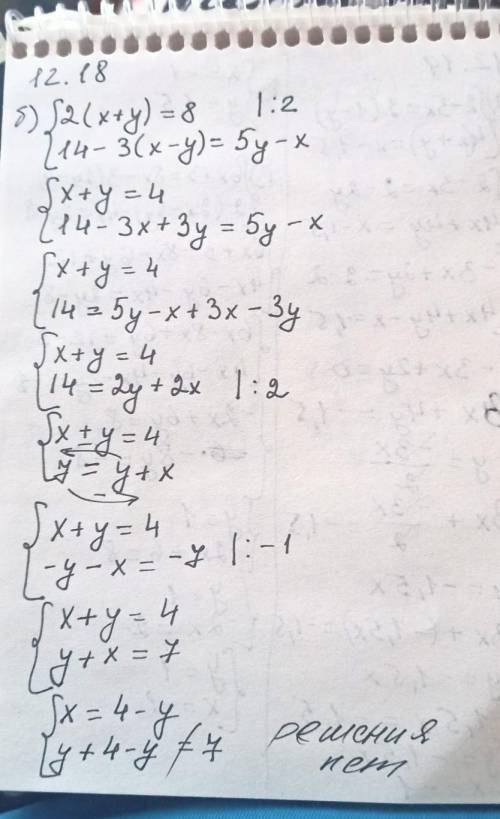 12.18
б) { 2(x+y) = 8 |:2
{ 14 - 3(x-y) = 5y - x
{ x+y = 4
{ 14 - 3x + 3y = 5y - x
{ x + y = 4
{ 14 = 5y - x + 3x - 3y
{ x + y = 4
{ 14 = 2y + 2x |:2
{ x + y = 4
{ 7 = y + x
{ x + y = 4
{ -y - x = -7 |:-1
{ x + y = 4
{ y + x = 7
{ x = 4 - y
{ y + 4 - y ≠ 7 решения
нет